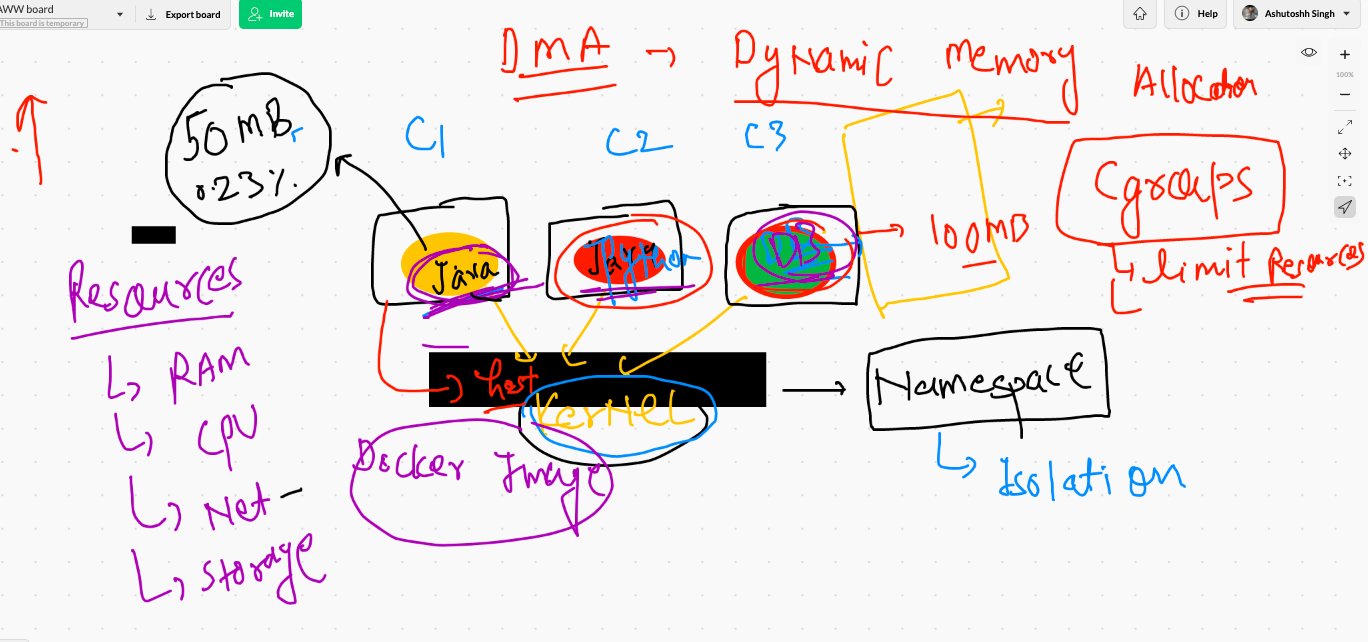 AWW board
This board is temporary
Export board
Invite
Help
Ashutoshh Singh
100%
DMA → Dynamic Memory
Allocator
50 MB
0.23%
C1
C2
C3
Cgroups
Java
Python
DB
100MB
limit Resources
Resources
RAM
CPU
Net-
Storage
host
KerNeL
Namespace
Docker Image
Isolation